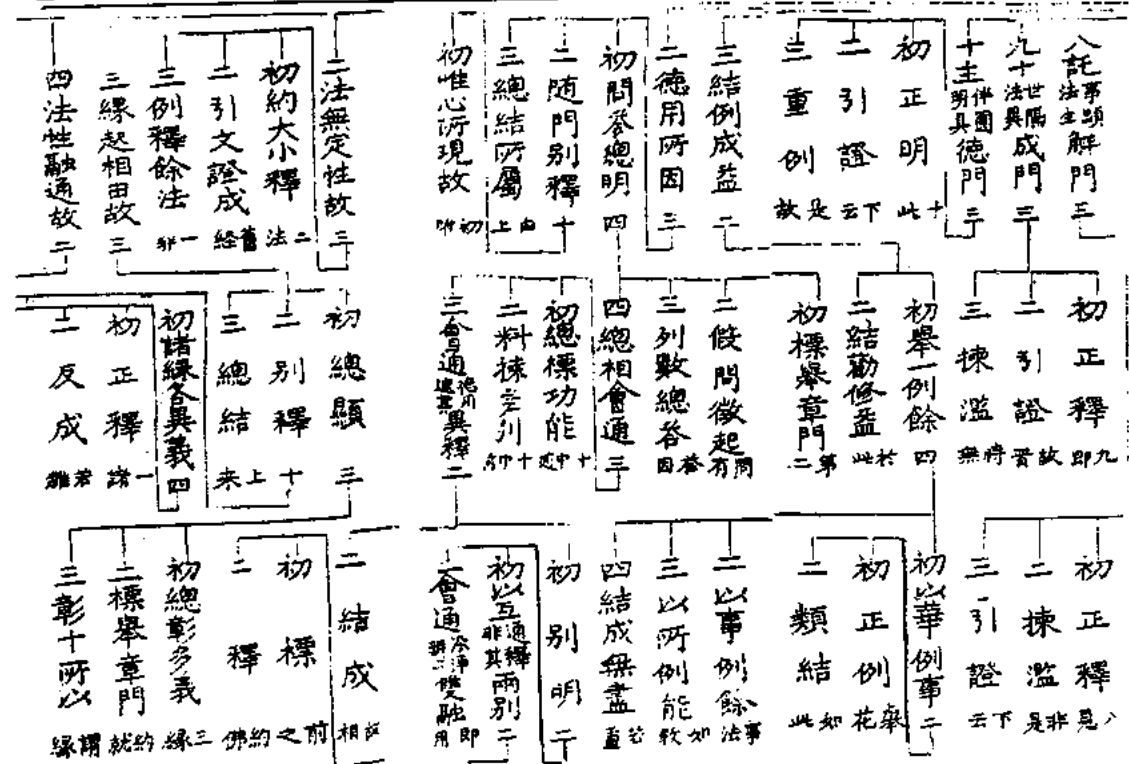 八託事顯法生解門 三
九十世隔法異成門 三
十主伴圓明具德門 三
初正明 此十
二引證 下云
三重例 是故
三結例成益 二
二德用所因 三
初問答總明 四
二随門別釋 十
三總結所屬 上由
初唯心所現故 初
二法無定性故 三
初約大小釋 二法
二引文證成 舊経
三例釋餘法 一
三緣起相由故 三
四法性融通故 二
初正釋 九即
二引證 故晋
三揀濫 時無
初舉一例餘 四
二結勸修益 於此
初標舉章門 第二
二假問徵起 問有
三列數總答 答因
四總相會通 三
初總標功能 十中
二料揀差別 十中
三會通德用異釋 二
初總顯 三
二別釋 十
三總結 上来
初諸緣各異義 四
初正釋 一諸
二反成 若雖
初正釋 八
二揀濫 非是
三引證 下云
初以華例事 二
初正例 舉花
二類結 如此
二以事例餘 事法
三以所例能 如
四結成無盡
初別明 二
初以互通釋非其兩別 二
二會通雙融 即用
二結成 相
初標 前之
二釋 約佛
初總彰多義 三緣
二標舉章門 約就
三彰十所以 謂緣